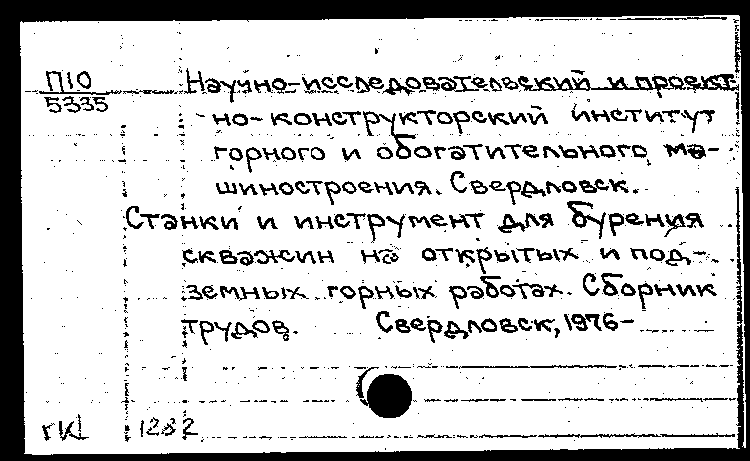 П10
5335
Научно-исследовательский и проект
но-конструкторский институт
горного и обогатительного ма-
шиностроения. Свердловск.
Станки и инструмент для бурения
скважин на открытых и под-
земных горных работах. Сборник
трудов. Свердловск, 1976-
1282